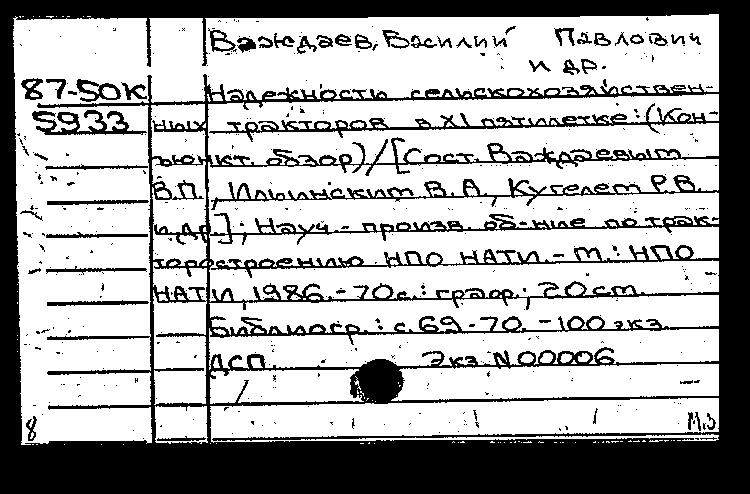 Важдаев, Василий Павлович
и др.
87-50К Надежность сельскохозяйствен-
5933 ных тракторов в XI пятилетке: (Кон-
ъюнкт. обзор) / [Сост. Важдаевым
В.П., Ильинским В.А., Кугелем Р.В.
и др.]; Науч.-произв. об-ние по трак-
торостроению НПО НАТИ. - М.: НПО
НАТИ, 1986. - 70 с.: граф.; 20 см.
Библиогр.: с. 69-70. - 100 экз.
ДСП. Экз. N 00006
8 М.З